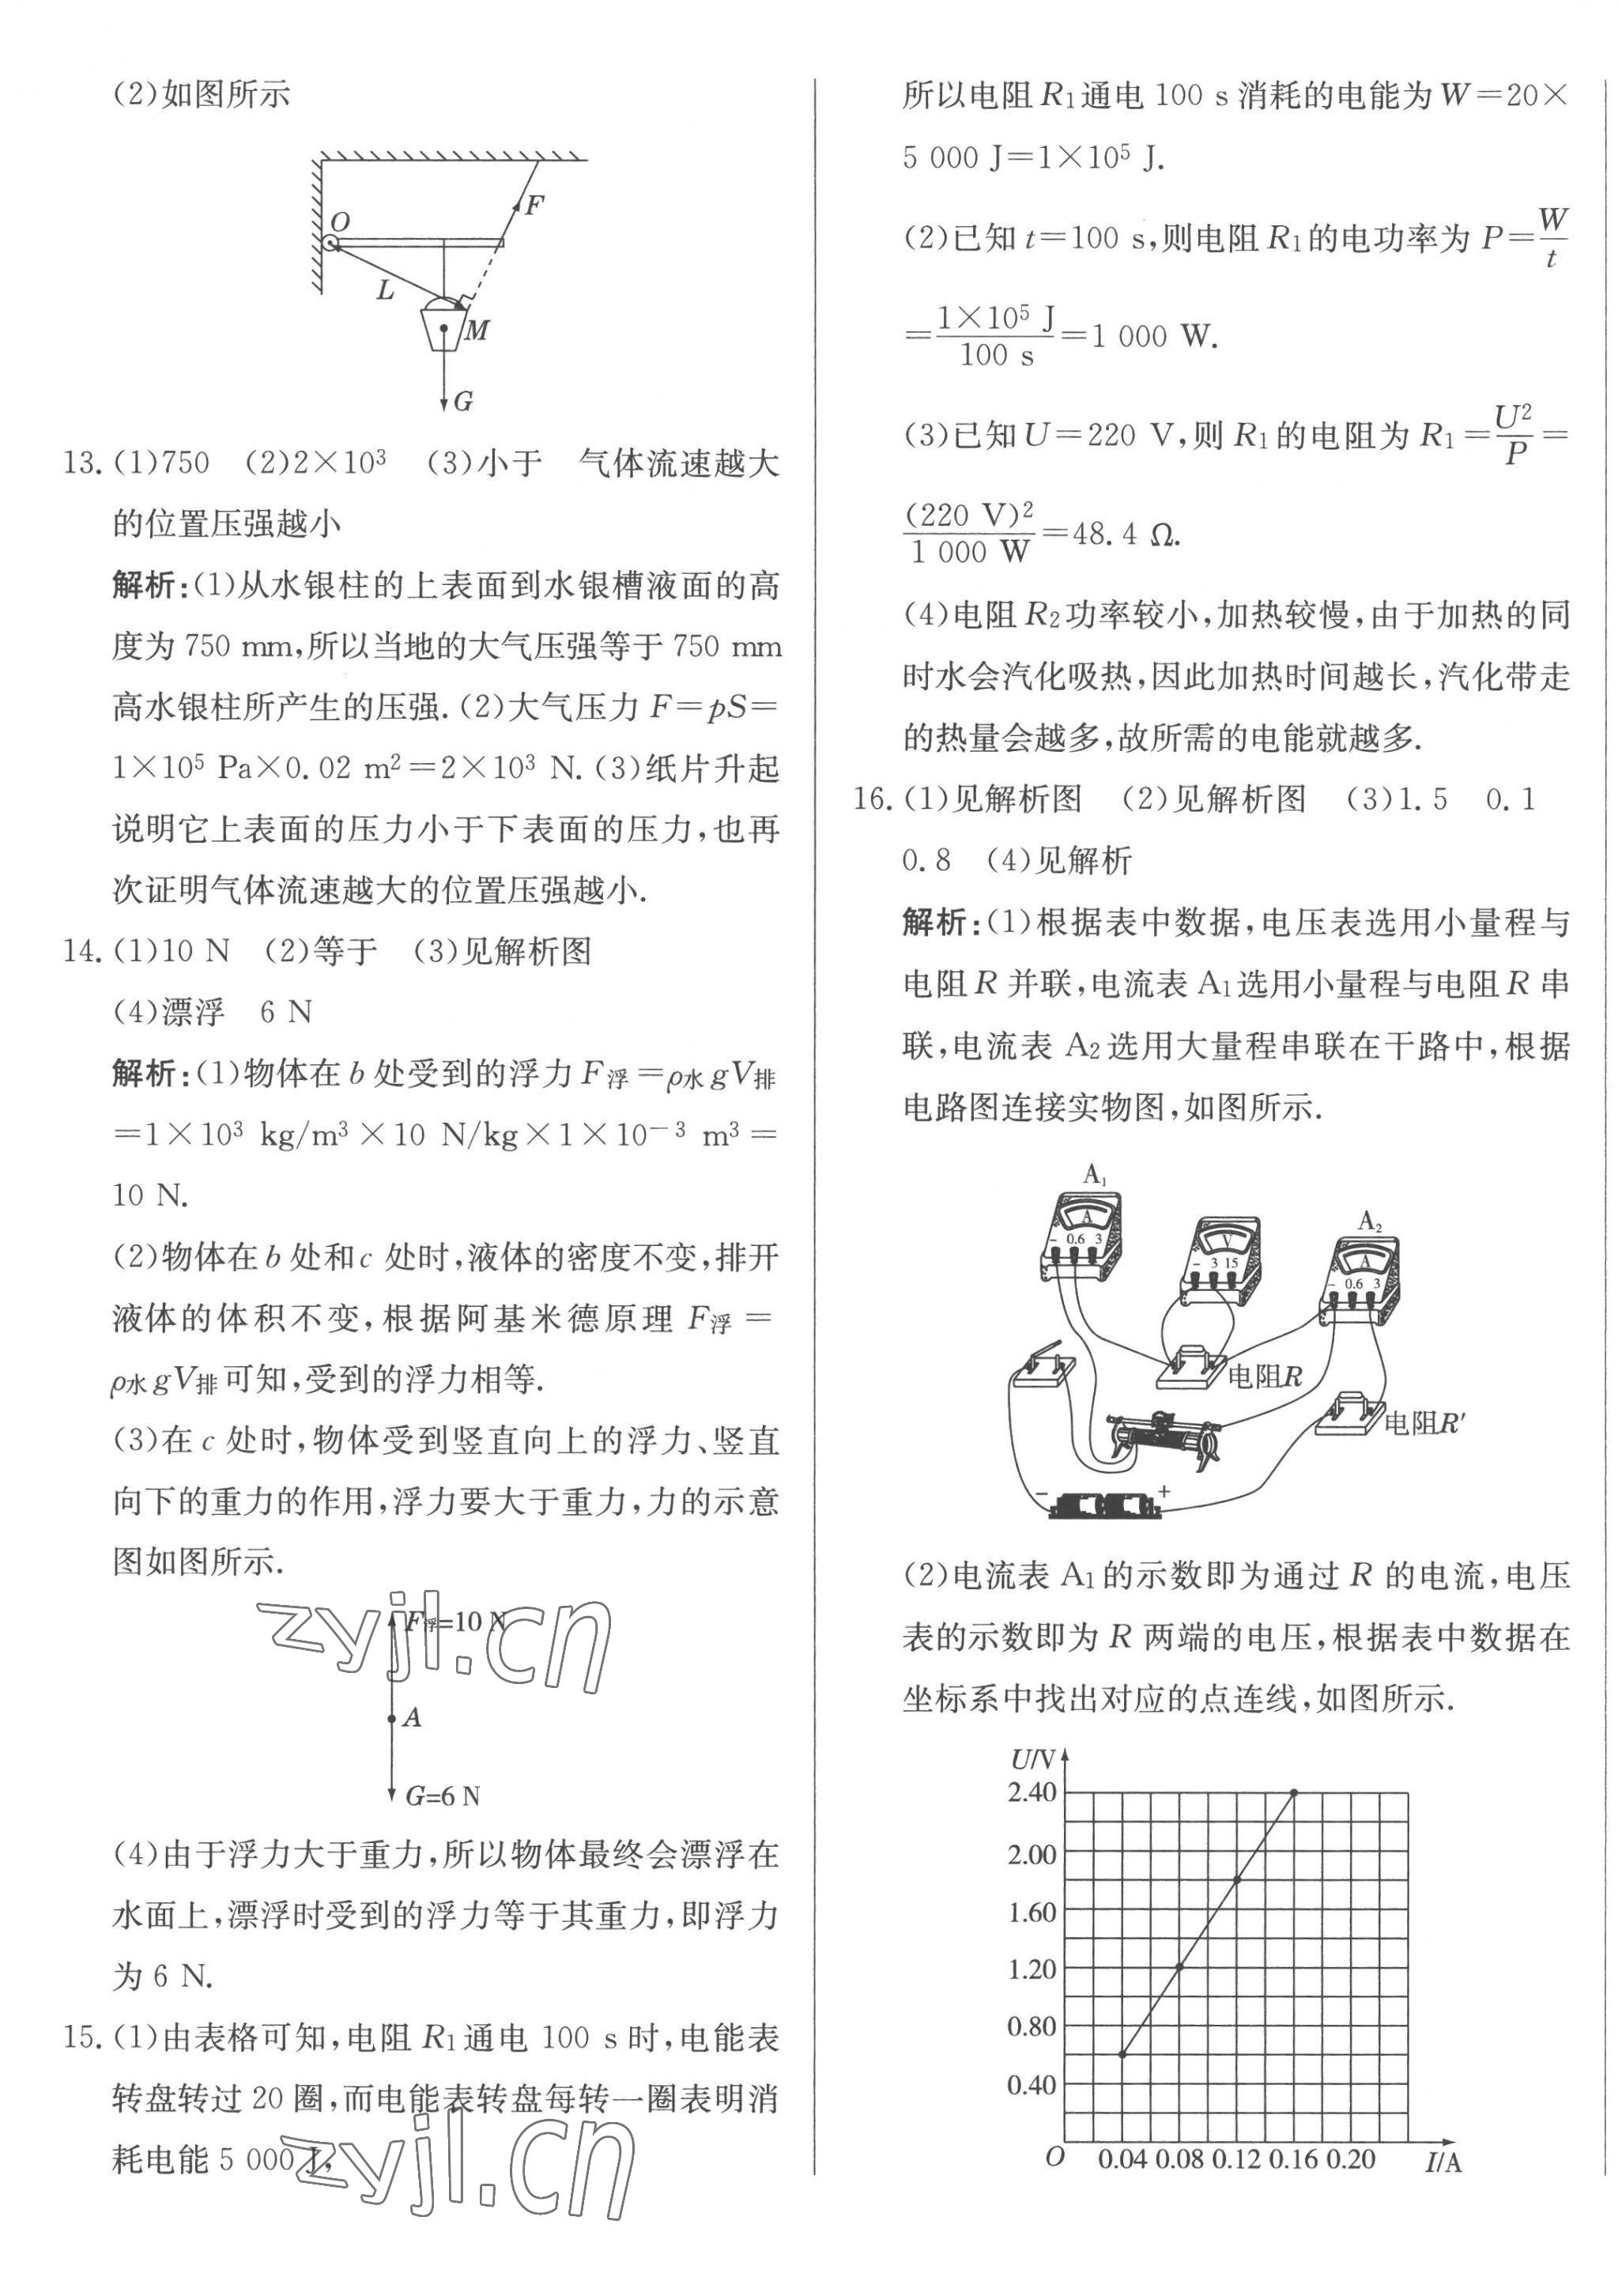 (2)如图所示
O
F
L
M
G
13.(1)750 (2)2×10³ (3)小于 气体流速越大
的位置压强越小
解析:(1)从水银柱的上表面到水银槽液面的高
度为 750 mm,所以当地的大气压强等于 750 mm
高水银柱所产生的压强.(2)大气压力 F=pS=
1×10⁵ Pa×0.02 m²=2×10³ N.(3)纸片升起
说明它上表面的压力小于下表面的压力,也再
次证明气体流速越大的位置压强越小.
14.(1)10 N (2)等于 (3)见解析图
(4)漂浮 6 N
解析:(1)物体在 b 处受到的浮力 F浮=ρ水gV排
=1×10³ kg/m³×10 N/kg×1×10⁻³ m³=
10 N.
(2)物体在 b 处和 c 处时,液体的密度不变,排开
液体的体积不变,根据阿基米德原理 F浮=
ρ水gV排可知,受到的浮力相等.
(3)在 c 处时,物体受到竖直向上的浮力、竖直
向下的重力的作用,浮力要大于重力,力的示意
图如图所示.
F浮=10 N
zyjl.cn
A
G=6 N
(4)由于浮力大于重力,所以物体最终会漂浮在
水面上,漂浮时受到的浮力等于其重力,即浮力
为 6 N.
15.(1)由表格可知,电阻 R₁通电 100 s 时,电能表
转盘转过 20 圈,而电能表转盘每转一圈表明消
耗电能 5 000 J,
zyjl.cn
所以电阻 R₁通电 100 s 消耗的电能为 W=20×
5 000 J=1×10⁵ J.
(2)已知 t=100 s,则电阻 R₁的电功率为 P=W/t
=1×10⁵ J/100 s=1 000 W.
(3)已知 U=220 V,则 R₁的电阻为 R₁=U²/P=
(220 V)²/1 000 W=48.4 Ω.
(4)电阻 R₂功率较小,加热较慢,由于加热的同
时水会汽化吸热,因此加热时间越长,汽化带走
的热量会越多,故所需的电能就越多.
16.(1)见解析图 (2)见解析图 (3)1.5 0.1
0.8 (4)见解析
解析:(1)根据表中数据,电压表选用小量程与
电阻 R 并联,电流表 A₁选用小量程与电阻 R 串
联,电流表 A₂选用大量程串联在干路中,根据
电路图连接实物图,如图所示.
A₁
A
- 0.6 3
V
- 3 15
A₂
A
- 0.6 3
电阻R
电阻R′
- +
(2)电流表 A₁的示数即为通过 R 的电流,电压
表的示数即为 R 两端的电压,根据表中数据在
坐标系中找出对应的点连线,如图所示.
U/V
2.40
2.00
1.60
1.20
0.80
0.40
O 0.04 0.08 0.12 0.16 0.20 I/A